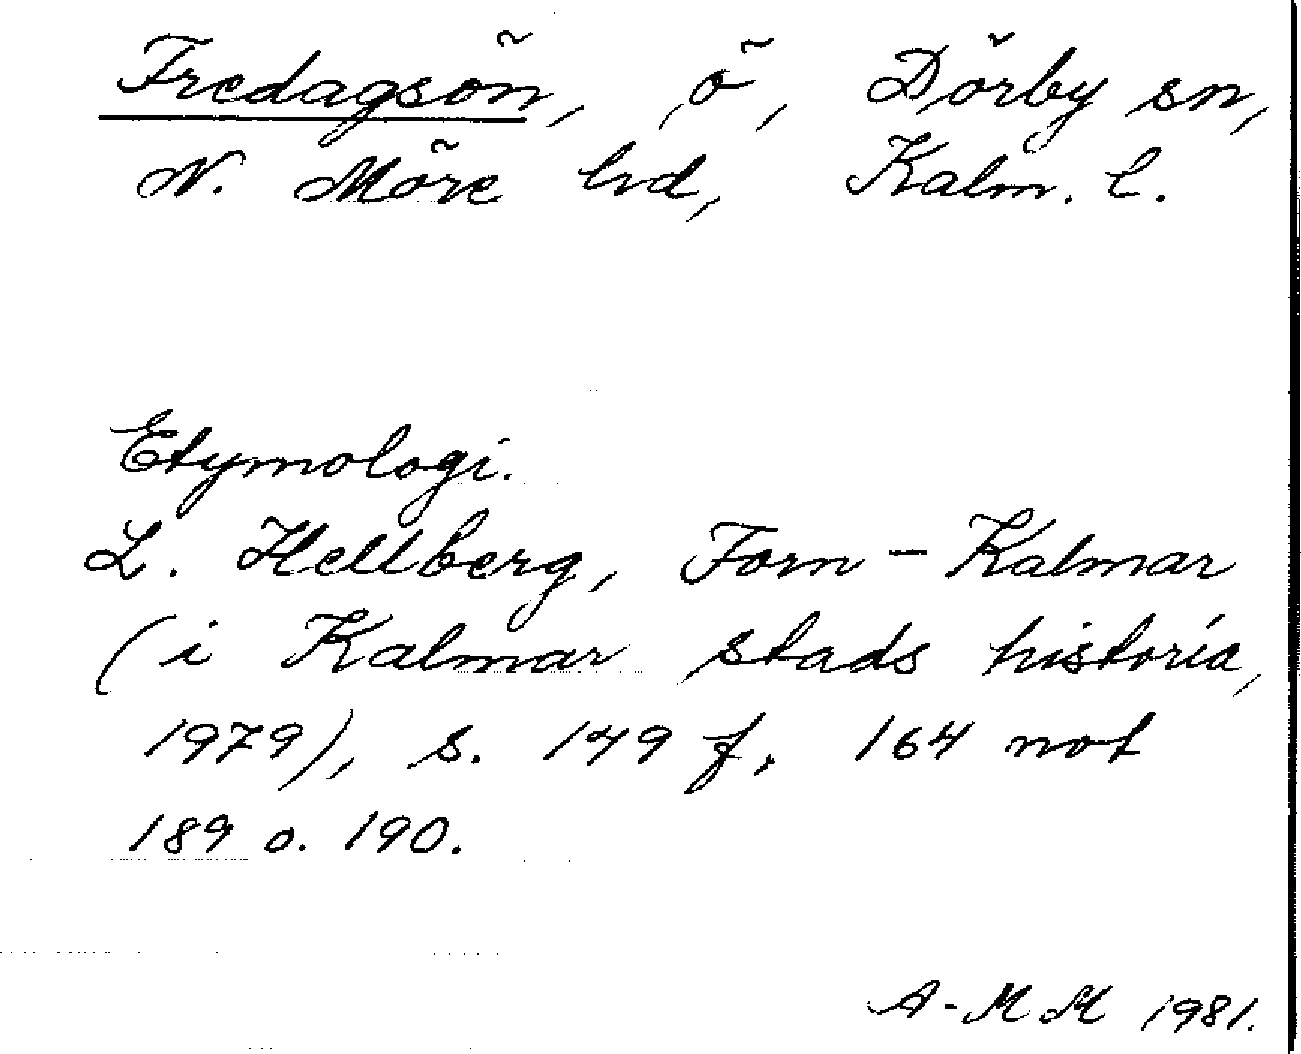 Fredagsön, ö, Dörby sn,
N. Möre hd, Kalm. l.
Etymologi.
L. Hellberg, Forn-Kalmar
(i Kalmar stads historia,
1979), s. 149 f, 164 not
189 o. 190.
A-MM 1981.